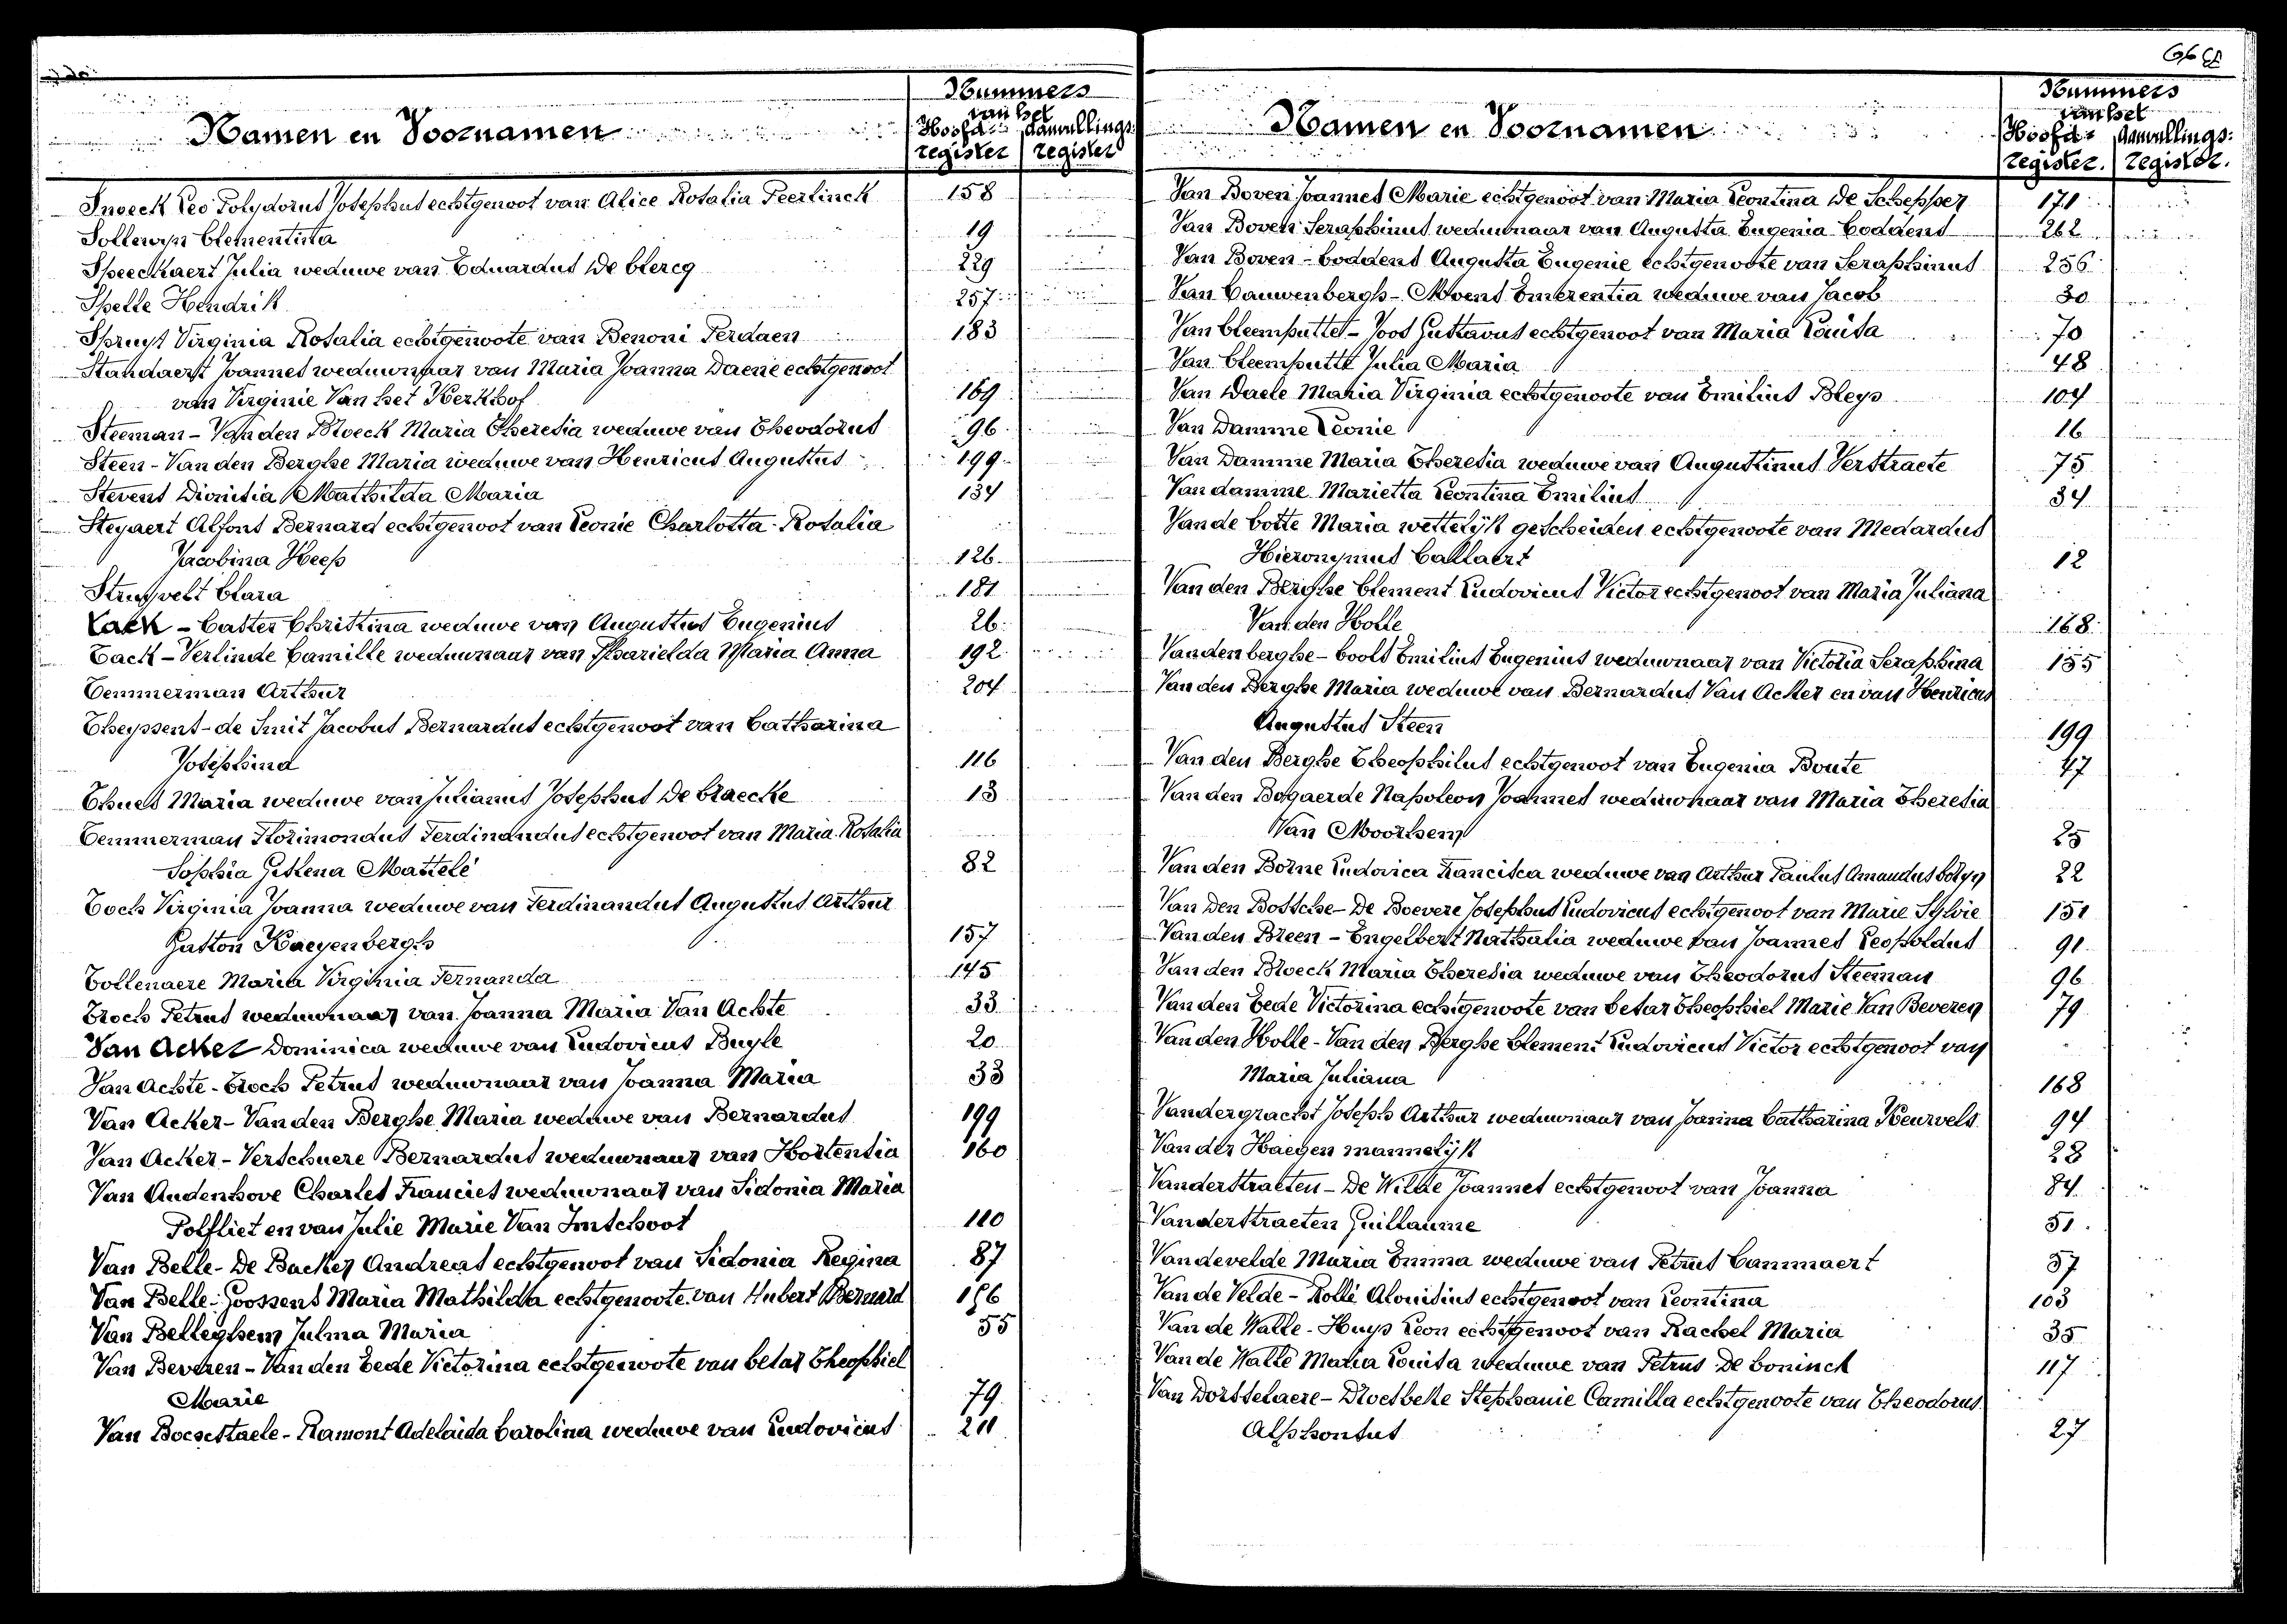 Namen en Voornamen
Nummers
van het
Hoofd- Aanvullings-
register register
Snoeck Leo Polydorus Josephus echtgenoot van Alice Rosalia Peerlinck 158
Sollewyn Clementina 19
Speeckaert Julia weduwe van Eduardus De Clercq 229
Spelle Hendrik 257
Spruyt Virginia Rosalia echtgenoote van Benoni Perdaen 183
Standaert Joannes weduwnaar van Maria Joanna Daene echtgenoot
van Virginie Van het Kerkhof 169
Steeman - Van den Broeck Maria Theresia weduwe van Theodorus 96
Steen - Van den Berghe Maria weduwe van Henricus Augustus 199
Stevens Dionisia Mathilda Maria 134
Steyaert Alfons Bernard echtgenoot van Leonie Charlotta Rosalia
Jacobina Heep 126
Struyvelt Clara 181
Tack - Caster Christina weduwe van Augustus Eugenius 26
Tack - Verlinde Camille weduwnaar van Pharielda Maria Anna 192
Temmerman Arthur 204
Theyssens - de Smit Jacobus Bernardus echtgenoot van Catharina
Josephina 116
Thues Maria weduwe van Julianus Josephus De Craecke 13
Temmerman Florimondus Ferdinandus echtgenoot van Maria Rosalia
Sophia Gislena Mattelé 82
Toch Virginia Joanna weduwe van Ferdinandus Augustus Arthur
Gaston Haeyenbergh 157
Tollenaere Maria Virginia Fernanda 145
Troch Petrus weduwnaar van Joanna Maria Van Achte 33
Van Acker Dominica weduwe van Ludovicus Buyle 20
Van Achte - Troch Petrus weduwnaar van Joanna Maria 33
Van Acker - Van den Berghe Maria weduwe van Bernardus 199
Van Acker - Verschuere Bernardus weduwnaar van Hortensia 160
Van Audenhove Charles Francies weduwnaar van Sidonia Maria
Polfliet en van Julie Marie Van Imschoot 110
Van Belle - De Backer Andreas echtgenoot van Sidonia Regina 87
Van Belle - Goossens Maria Mathilda echtgenoote van Hubert Bernard
Van Belleghem Julma Maria 55
Van Beveren - Van den Eede Victorina echtgenoote van Cesar Theophiel
Marie 79
Van Bocxstaele - Ramont Adelaida Carolina weduwe van Ludovicus 211
Namen en Voornamen
Nummers
van het
Hoofd- Aanvullings-
register. register.
Van Boven Joannes Marie echtgenoot van Maria Leontina De Schepper 171
Van Boven Seraphinus weduwnaar van Augusta Eugenia Coddens 262
Van Boven - Coddens Augusta Eugenie echtgenoote van Seraphinus 256
Van Cauwenbergh - Moens Emerentia weduwe van Jacob 30
Van Cleemputte - Joos Gustavus echtgenoot van Maria Louisa 70
Van Cleemputte Julia Maria 48
Van Daele Maria Virginia echtgenoote van Emilius Bleys 104
Van Damme Leonie 16
Van Damme Maria Theresia weduwe van Augustinus Verstraete 75
Van damme Marietta Leontina Emilius 34
Van de Cotte Maria wettelijk gescheiden echtgenoote van Medardus
Hieronymus Callaert 12
Van den Berghe Clement Ludovicus Victor echtgenoot van Maria Juliana
Van den Holle 168
Vandenberghe - Cools Emilius Eugenius weduwnaar van Victoria Seraphina 155
Van den Berghe Maria weduwe van Bernardus Van Acker en van Henricus
Augustus Steen 199
Van den Berghe Theophilus echtgenoot van Eugenia Boute 47
Van den Bogaerde Napoleon Joannes weduwnaar van Maria Theresia
Van Moorhem 25
Van den Borne Ludovica Francisca weduwe van Arthur Paulus Amandus Colyn 22
Van Den Bossche - De Boevere Josephus Ludovicus echtgenoot van Marie Sylvie 151
Van den Breen - Engelbert Nathalia weduwe van Joannes Leopoldus 91
Van den Broeck Maria Theresia weduwe van Theodorus Steeman 96
Van den Eede Victorina echtgenoote van Cesar Theophiel Marie Van Beveren 79
Van den Holle - Van den Berghe Clement Ludovicus Victor echtgenoot van
Maria Juliana 168
Vandergracht Joseph Arthur weduwnaar van Joanna Catharina Heurvels 94
Van der Haegen mannelijk 28
Vanderstraeten - De Wilde Joannes echtgenoot van Joanna 84
Vanderstraeten Guillaume 51
Vandevelde Maria Emma weduwe van Petrus Cammaert 37
Van de Velde - Rollé Aloisius echtgenoot van Leontina 103
Van de Walle - Huys Leon echtgenoot van Rachel Maria 35
Van de Walle Maria Louisa weduwe van Petrus De Coninck 117
Van Dorsselaere - Droesbeke Stephanie Camilla echtgenoote van Theodorus
Alphonsus 27